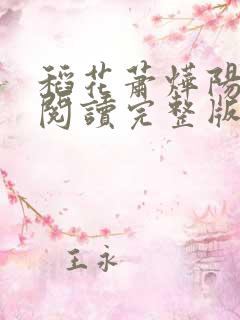 稻花蕭燁陽
閱讀完整版
王永